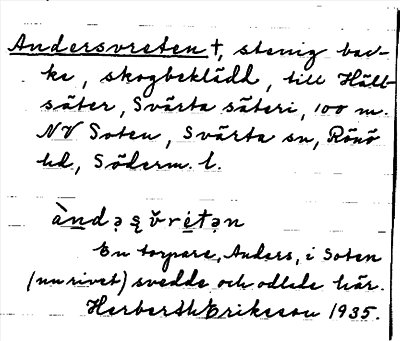 Andersvreten †, stenig bac-
ke, skogbeklädd, till Häll-
säter, Svärta säteri, 100 m.
NV Soten, Svärta sn, Rönö
hd, Söderm. l.
àndəʂvretən
En torpare, Anders, i Soten
(nu rivet) svedde och odlade här.
Herberth Eriksson 1935.